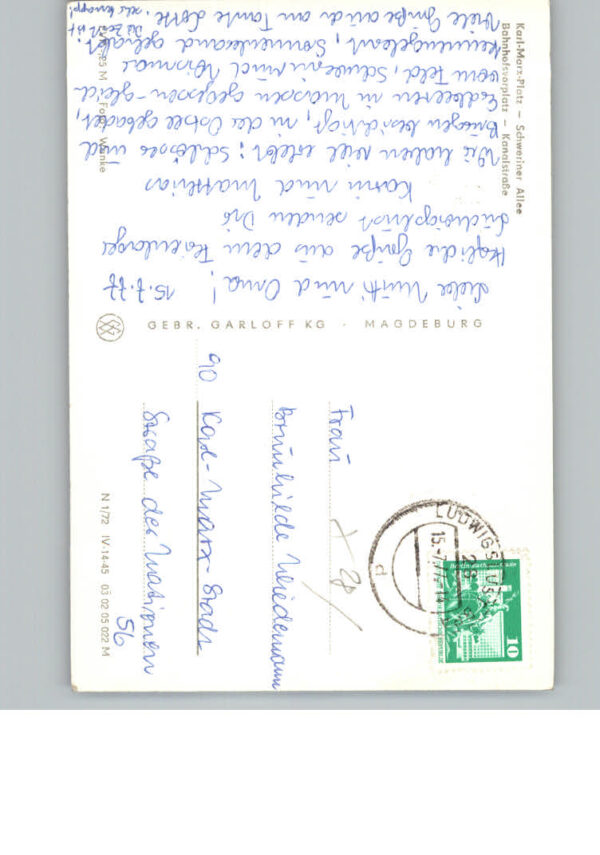 Karl-Marx-Platz – Schweriner Allee
Bahnhofsvorplatz – Kanalstraße
Liebe Mutti und Oma! 15.7.77
Herzliche Grüße aus dem Ferienlager
Ludwigslust senden Dir
Karin und Matthias
Wir haben viel erlebt: Schlösser und
Burgen besichtigt, in der Ostsee gebadet,
Erdbeeren in Massen gegessen - gleich
vom Feld, Schwerin und Wismar
kennengelernt, Sonnenbrand gehabt.
Viele Grüße auch an Tante Lotte.
Die Zeit ist
sehr knapp!
Foto:
GEBR. GARLOFF KG · MAGDEBURG
Frau
Brunhilde Wiedemann
90 Karl-Marx-Stadt
Straße der Nationen
56
N 1/72 IV-14-45 03 02 05 022 M
LUDWIGSLUST
15.-7.77
10